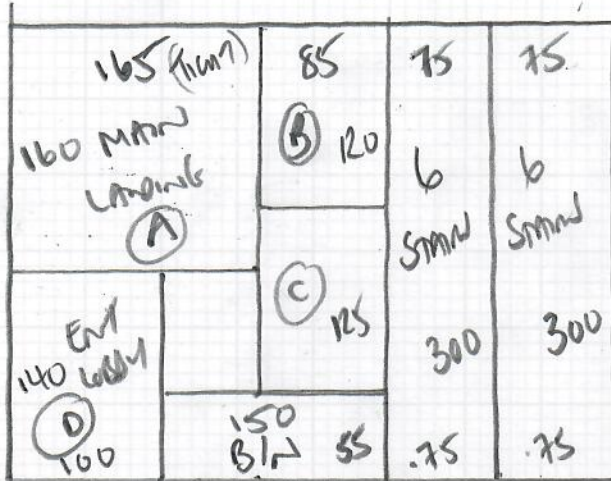 165 (TIGHT)
160 MAIN
LANDING
A
85
B 120
C
125
75
6
STAIR
300
.75
75
6
STAIR
300
.75
ENT
140 LOBBY
D
100
150
BIN 55